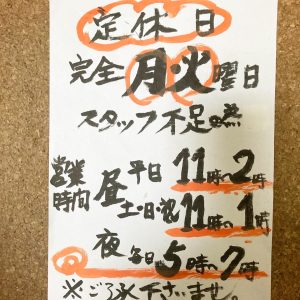 定休日
完全月・火曜日
スタッフ不足の為
営業時間
昼 平日 11時〜2時
土・日・祝 11時〜1時
夜 毎日 5時〜7時
※ご了承下さいませ